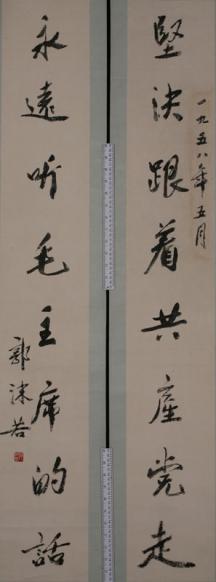 一九五八年五月
堅决跟着共産党走
永遠听毛主席的話
郭沫若